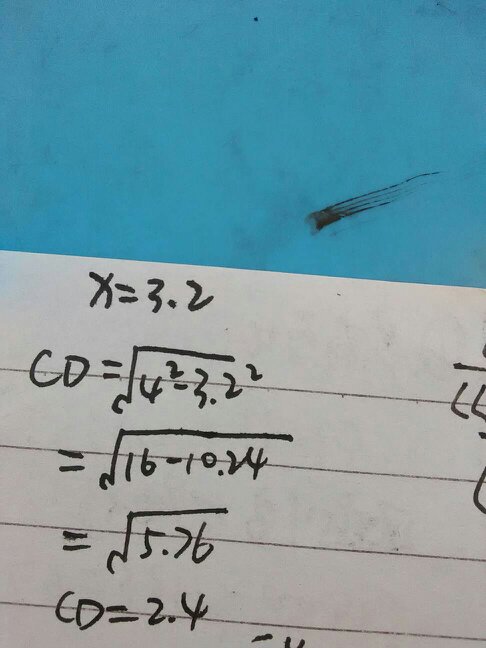 x=3.2
CD=√4²-3.2²
=√16-10.24
=√5.76
CD=2.4